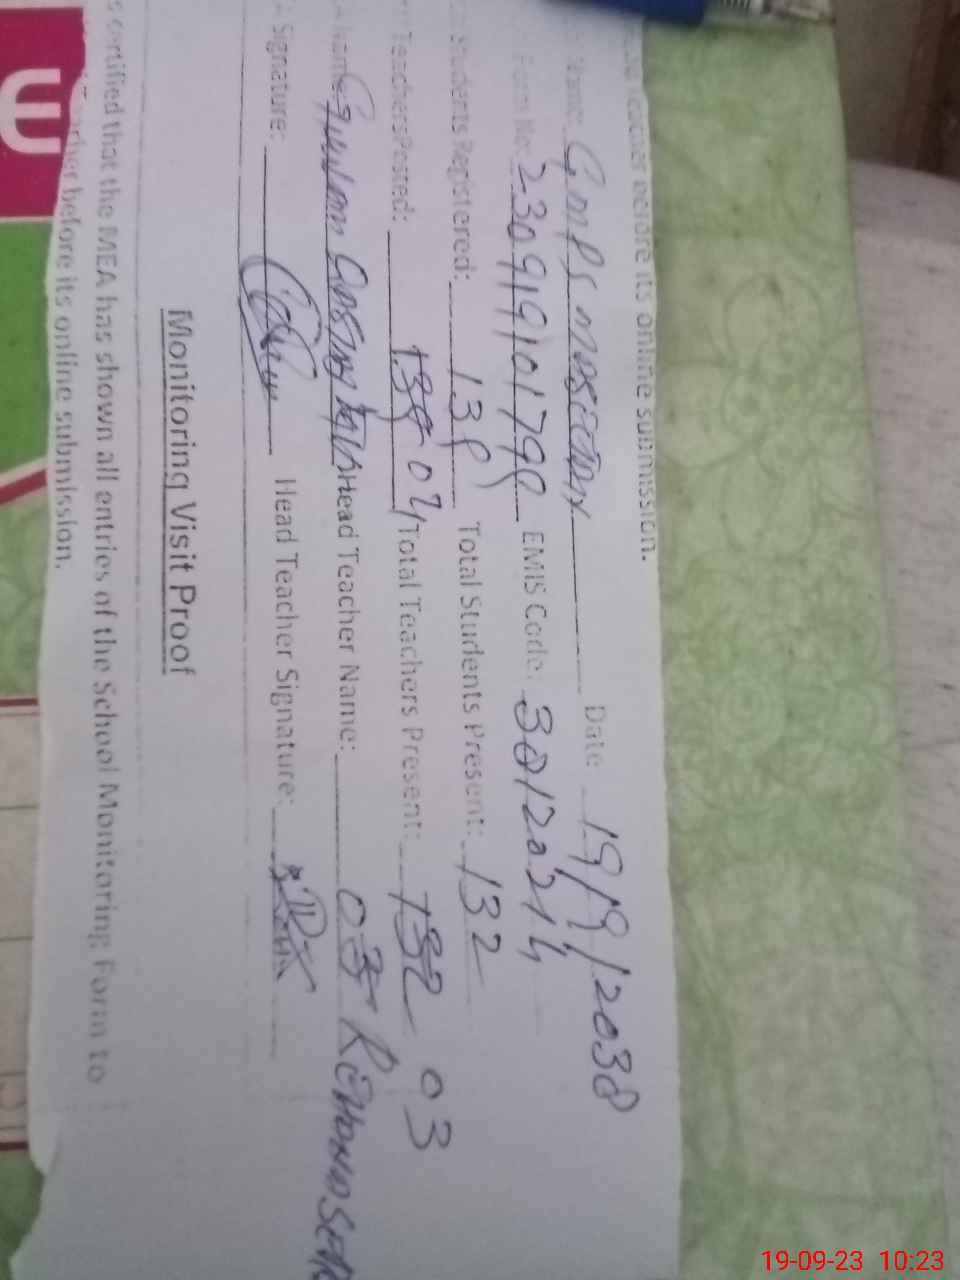 Teacher before its online submission.
Name: GMPS Date 19/9/2038
Form No: 230919101798 EMIS Code: 38120214
Students Registered: 138 Total Students Present: 132
Teachers Posted: 138 04 Total Teachers Present: 132 03
Name: Gulam Head Teacher Name: 03
Signature: Head Teacher Signature:
Monitoring Visit Proof
certified that the MEA has shown all entries of the School Monitoring Form to
before its online submission.
19-09-23 10:23